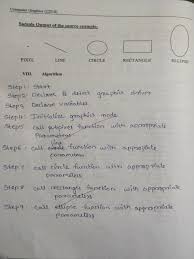 Computer Graphics (22318)
Sample Output of the source example:
PIXEL LINE CIRCLE RECTANGLE ELLIPSE
VIII. Algorithm
Step 1: Start
Step 2: Declare & detect graphic driver
Step 3: Declare variables
Step 4: Initialize graphic mode
Step 5: call putpixel function with appropriate
Parameters
line
Step 6: call circle function with appropriate
parameters
Step 7: call circle function with appropriate
parameters
Step 8: call rectangle function with appropriate
parameters
Step 9: call ellipse function with appropriate
parameters